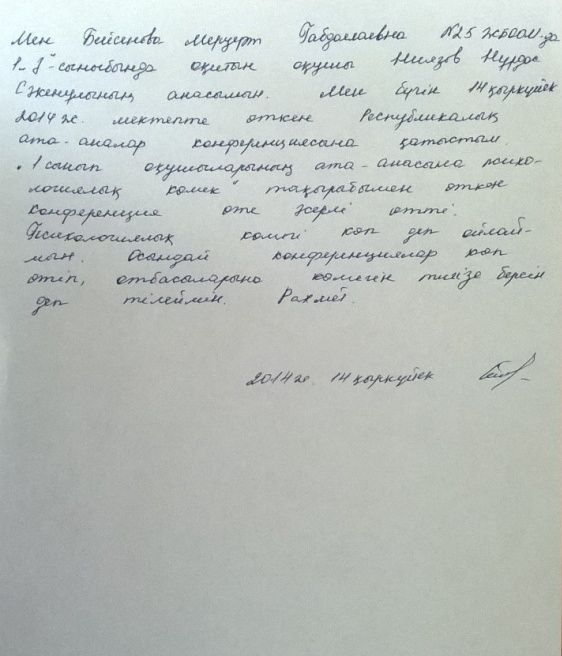 Мен Бейсенова Меруерт Габдолаевна №25 ЖББОМ-да
1 "-сыныбында оқитын оқушы Ниязов Нұрдос
Сәкенұлының анасымын. Мен бүгін 14 қыркүйек
2014 ж. мектепте өткен Республикалық
ата-аналар конференциясына қатыстым.
"1 сынып оқушыларының ата-анасына психо-
логиялық көмек" тақырабымен өткен
конференция өте әсерлі өтті.
Психологиялық көмгі көп деп ойлай-
мын. Осындай конференциялар көп
өтіп, отбасыларына көмегін тигізе берсін
деп тілеймін. Рахмет.
2014 ж. 14 қыркүйек